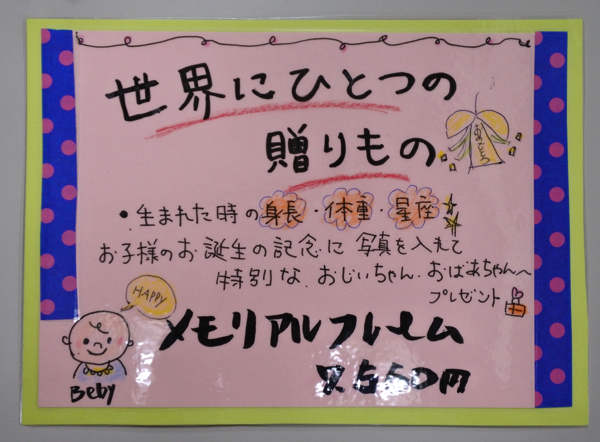 世界にひとつの
贈りもの
おめでとう
・生まれた時の身長・体重・星座
お子様のお誕生の記念に 写真を入れて
特別な おじいちゃん.おばあちゃんへ
プレゼント
HAPPY
メモリアルフレーム
Beby